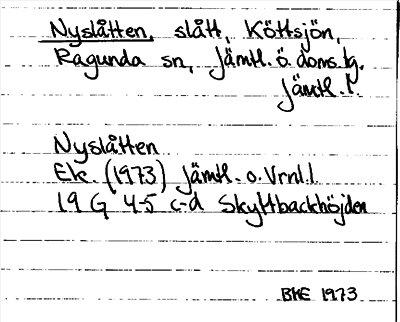 Nyslåtten, slått, Köttsjön,
Ragunda sn, Jämtl. ö. doms. tg.
Jämtl. l.
Nyslåtten
Ek. (1973) Jämtl. o. Vrnl. l.
19 G 4-5 c-d Skyttbackhöjden
BHE 1973